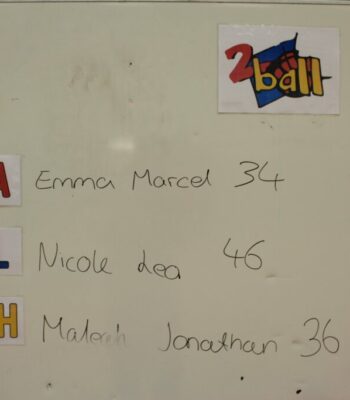 2 ball
A Emma Marcel 34
L Nicole Lea 46
H Jonathan 36